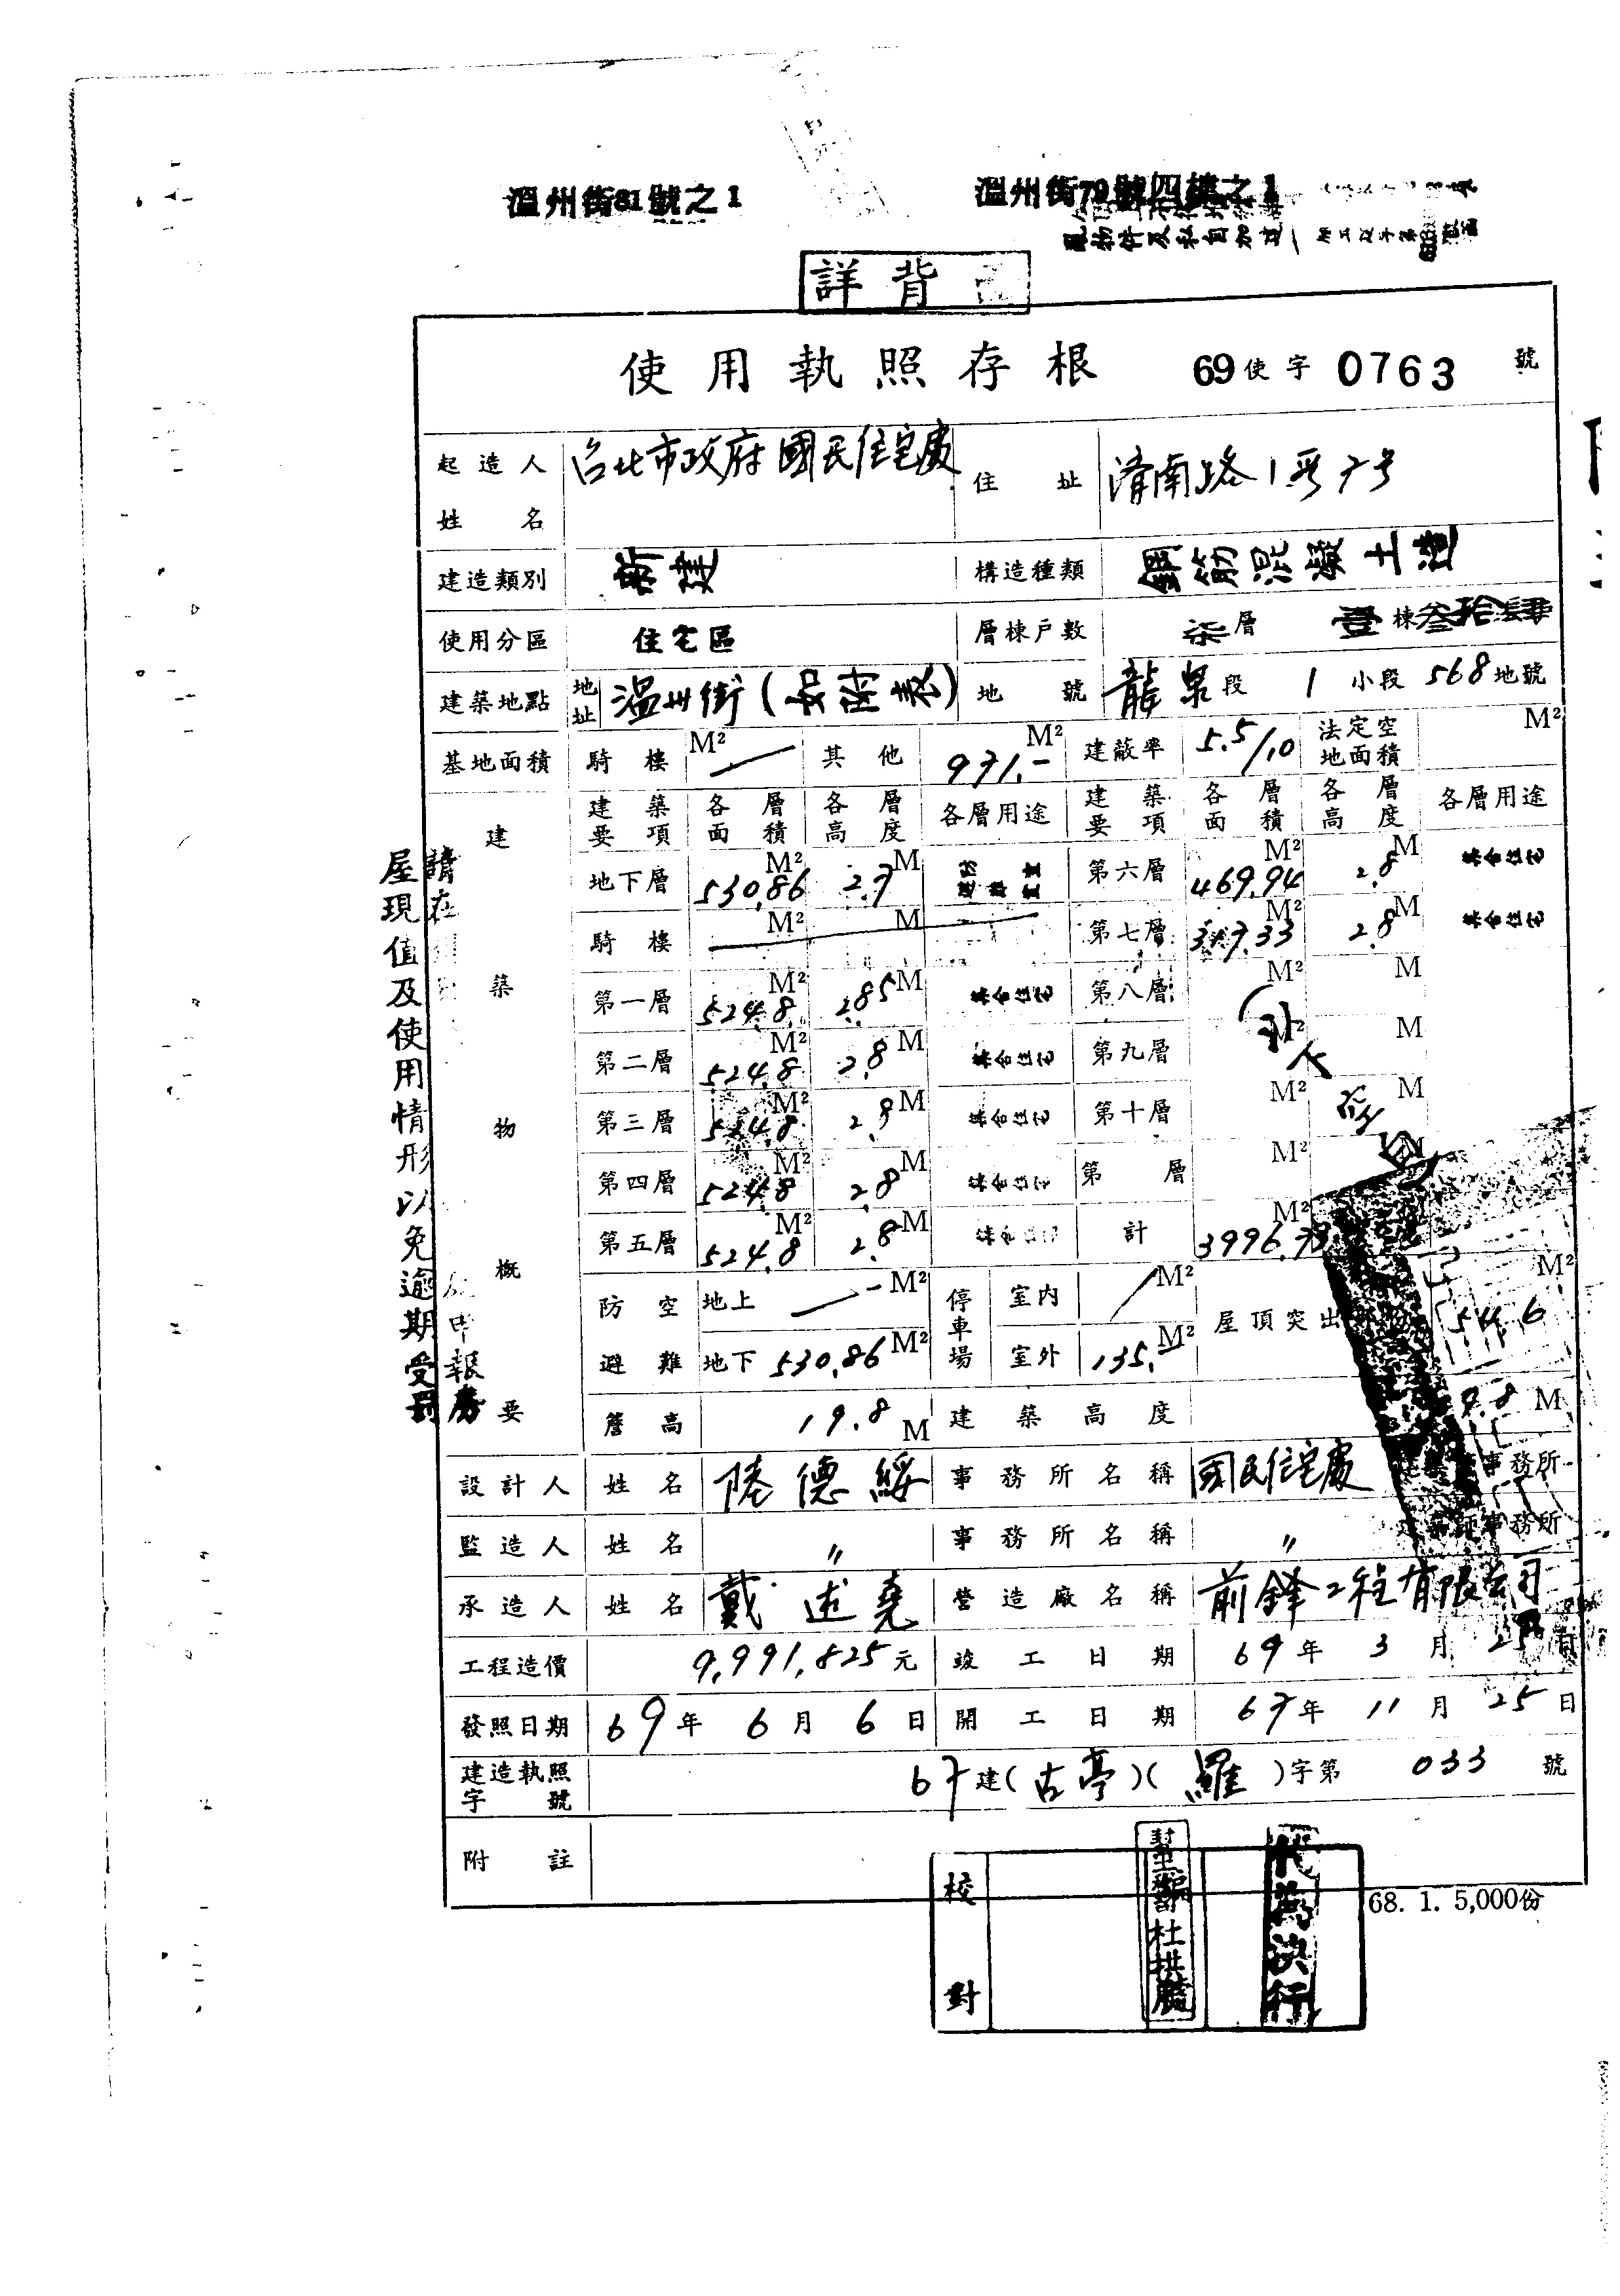 溫州街81號之1
溫州街79號四樓之1
詳背
使用執照存根 69使字0763號
起造人姓名 台北市政府國民住宅處 住址 濟南路1段7号
建造類別 新建 構造種類 鋼筋混凝土造
使用分區 住宅區 層棟戶數 柒層 壹棟叁拾肆
建築地點 地址 温州街(如附表) 地號 龍泉段 1小段 568地號
基地面積 騎樓 M² 其他 971.- M² 建蔽率 5.5/10 法定空地面積 M²
建築物概要
建築要項 各層面積 各層高度 各層用途 建築要項 各層面積 各層高度 各層用途
地下層 530.86 M² 2.7 M 第六層 469.94 M² 2.8 M 集合住宅
騎樓 M² M 第七層 317.33 M² 2.8 M 集合住宅
第一層 524.8 M² 2.85 M 集合住宅 第八層 M² M
第二層 524.8 M² 2.8 M 集合住宅 第九層 M² M
第三層 524.8 M² 2.8 M 集合住宅 第十層 M² M
第四層 524.8 M² 2.8 M 集合住宅 第 層 M² M
第五層 524.8 M² 2.8 M 集合住宅 計 3996.73 M²
(以下空白
防空避難 地上 M² 停車場 室內 M² 屋頂突出 54.6 M²
地下 530.86 M² 室外 135.- M²
簷高 19.8 M 建築高度 9.8 M
設計人 姓名 陸德綏 事務所名稱 國民住宅處 事務所
監造人 姓名 〃 事務所名稱 〃 建築師事務所
承造人 姓名 戴述堯 營造廠名稱 前鋒工程有限公司
工程造價 9,991,825元 竣工日期 69年3月25日
發照日期 69年6月6日 開工日期 67年11月25日
建造執照字號 67建(古亭)(羅)字第033號
附註
請在
申報房
屋現值及使用情形以免逾期受罰
校對
杜拱
代為決行
68. 1. 5,000份